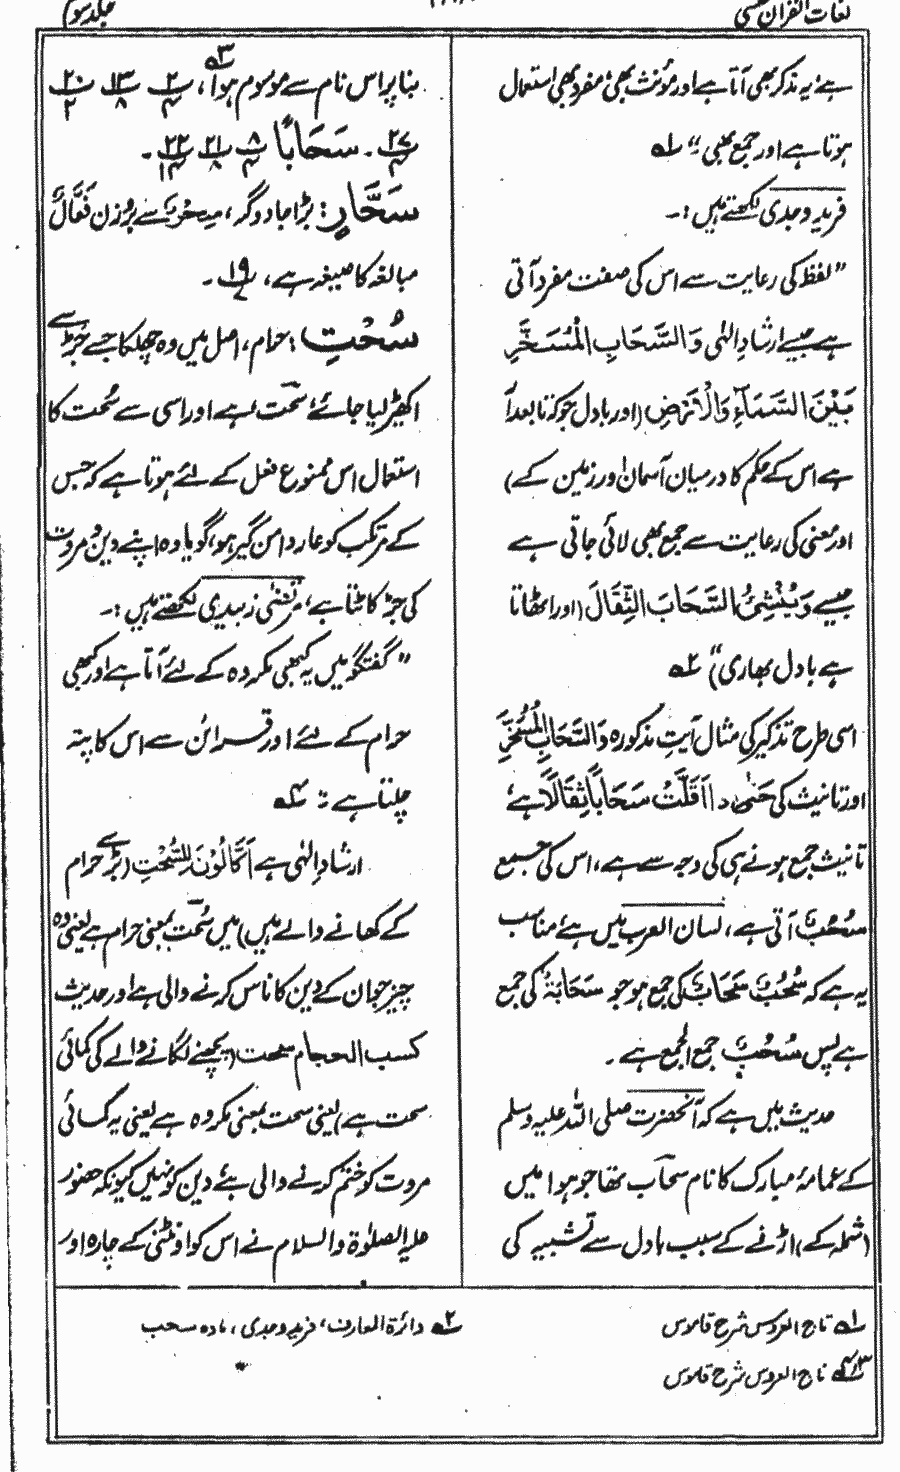 لغات القرآن
جلد سوم
ہے، یہ مذکر بھی آتا ہے اور مؤنث بھی، مفرد بھی استعمال
ہوتا ہے اور جمع بھی"؎۱
فرید وجدی لکھتے ہیں :۔
"لفظ کی رعایت سے اس کی صفت مفرد آتی
ہے جیسے ارشادِ الٰہی وَالسَّحَابِ الْمُسَخَّرِ
بَيْنَ السَّمَآءِ وَالْاَرْضِ (اور بادل جو کہ تابعدار
ہے اس کے حکم کا درمیان آسمان اور زمین کے)
اور معنی کی رعایت سے جمع بھی لائی جاتی ہے
جیسے وَيُنْشِئُ السَّحَابَ الثِّقَالَ (اور اٹھاتا
ہے بادل بھاری)" ؎۲
اسی طرح تذکیر کی مثال آیتِ مذکورہ وَالسَّحَابِ الْمُسَخَّرِ
اور تانیث کی حَتّٰى اِذَا اَقَلَّتْ سَحَابًا ثِقَالًا ہے،
تانیث جمع ہونے ہی کی وجہ سے ہے، اس کی جمع
سُحُبٌ آتی ہے، لسان العرب میں ہے، مناسب
یہ ہے کہ سُحُبٌ سَحَابٌ کی جمع ہو جو سَحَابَةٌ کی جمع
ہے پس سُحُبٌ جمع الجمع ہے ۔
حدیث میں ہے کہ آنحضرت صلی اللہ علیہ وسلم
کے عمامۂ مبارک کا نام سحاب تھا جو ہوا میں
(شملہ کے) اڑنے کے سبب بادل سے تشبیہ کی
بناپر اس نام سے موسوم ہوا، ؎۳ ۲/۴ ۱۳/۸ ۲۰/۲
۲۷/۴ ۔ سَحَابًا ۸/۴ ۲۱/۸ ۲۲/۱۴ ۔
سَحَّارٍ : بڑا جادوگر، سِحْرٌ سے بروزن فَعَّالٌ
مبالغہ کا صیغہ ہے، ۱۹/۷ ۔
سُحْتِ : حرام، اصل میں وہ چھلکا جسے جڑ سے
اکھیڑ لیا جائے، سحت ہے اور اسی سے سُحت کا
استعمال اس ممنوع فعل کے لئے ہوتا ہے کہ جس
کے مرتکب کو عار دامن گیر ہو، گویا وہ اپنے دین و مروت
کی جڑ کاٹتا ہے، مرتضٰی زبیدی لکھتے ہیں :۔
"گفتگو میں یہ کبھی مکروہ کے لئے آتا ہے اور کبھی
حرام کے لئے اور قرائن سے اس کا پتہ
چلتا ہے" ؎۴
ارشادِ الٰہی ہے اَكَّالُوْنَ لِلسُّحْتِ (بڑے حرام
کے کھانے والے ہیں) میں سُحت بمعنی حرام ہے یعنی وہ
چیز جو ان کے دین کا ناس کرنے والی ہے اور حدیث
کسب الحجام سحت (پچھنے لگانے والے کی کمائی
سحت ہے) یعنی سحت بمعنی مکروہ ہے یعنی یہ کمائی
مروت کو ختم کرنے والی ہے، دین کو نہیں کیونکہ حضور
علیہ الصلوٰۃ والسلام نے اس کو اونٹنی کے چارہ اور
؎۱ تاج العروس شرح قاموس
؎۲ دائرۃ المعارف، فرید وجدی، مادہ سحب
؎۳، ؎۴ تاج العروس شرح قاموس